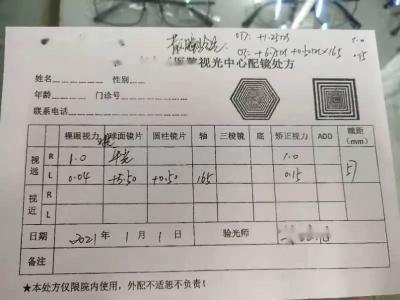 OD: +1.25DS 1.0
OS: +6.75DS +0.50DC×165 0.15
医学视光中心配镜处方
姓名 性别
年龄 门诊号
联系电话
裸眼视力 球面镜片 圆柱镜片 轴 三棱镜 底 矫正视力 ADD 瞳距(mm)
视远 R 1.0 平光 1.0
L 0.04 +5.50 +0.50 165 0.15 57
视近 R
L
日期 2021年 1月 1日 验光师
备注
★本处方仅限院内使用，外配不适恕不负责！